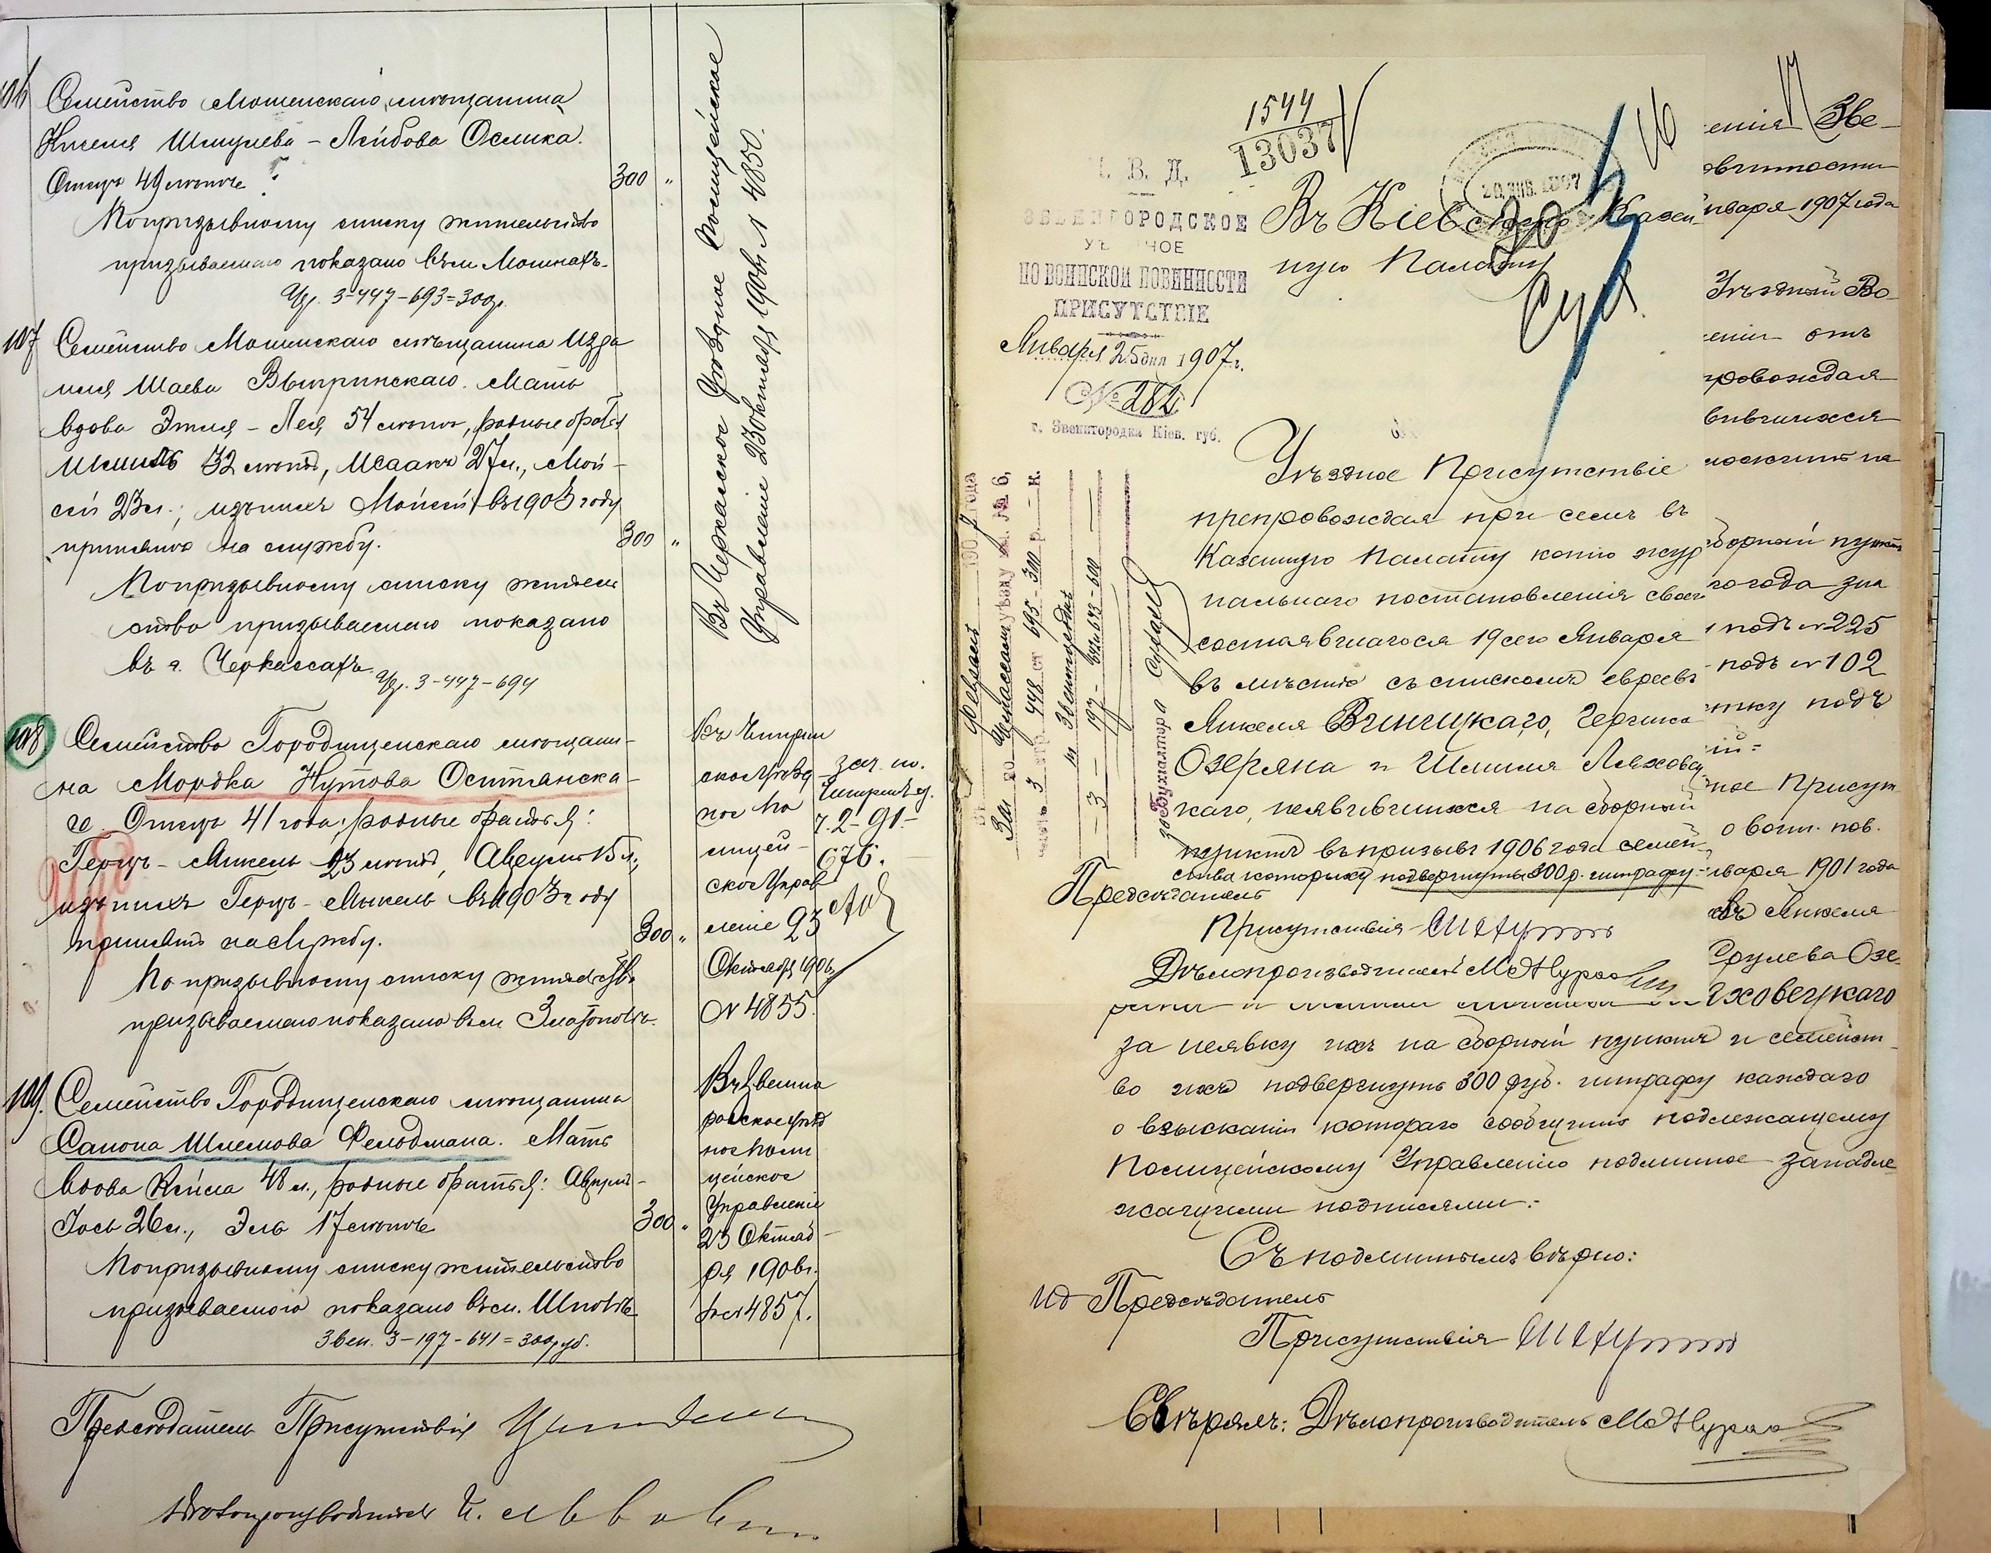 106
Семейство Мошенскаго мѣщанина
Кисиля Шмулева - Лейбова Ослика.
Отецъ 49 лѣтъ
300 "
По призывному списку жительство
призываемаго показано въ м. Мошнахъ.
3-447-693=300р.
107
Семейство Мошенскаго мѣщанина Изра
иля Шаева Мать
вдова Этля - Лея 54 лѣтъ, родные братья
32 лѣтъ, Исаакъ 27 л., Мой-
сей 23 л.; изъ нихъ Мойсей въ 1903 году
принятъ на службу.
300 "
По призывному списку житель
ство призываемаго показано
въ г. Черкассахъ.
3-447-694
Въ Черкасское Уѣздное Полицейское
Управленіе 23 Октября 1906 г. № 4850.
108
Семейство Городищенскаго мѣщани-
на Мордка Нутова Остпанска-
го. Отецъ 41 года, родные братья:
Герцъ - Янкель 23 лѣтъ,
изъ нихъ Герцъ - въ 1903 году
принятъ на службу.
300 "
По призывному списку жительство
призываемаго показано въ м. Златополѣ.
Въ Чигрин
ское Уѣзд
ное По
лицей-
ское Управ
леніе 23
Октября 1906
№ 4855.
7.2-91-
676.
109.
Семейство Городищенскаго мѣщанина
Сапона Шлемова Фельдмана. Мать
вдова Кейла 48 л., родные братья:
Іось 26 л., Эль 17 лѣтъ
300 "
По призывному списку жительство
призываемаго показано въ м. Шполѣ
Звен. 3-197-641=300 руб.
Въ Звениго
родское Уѣзд
ное Поли
цейское
Управленіе
23 Октяб-
ря 1906 г.
№ 4857.
Предсѣдатель Присутствія
Дѣлопроизводитель
1544
13037
16
17
М. В. Д.
ЗВЕНИГОРОДСКОЕ
УѢЗДНОЕ
ПО ВОИНСКОЙ ПОВИННОСТИ
ПРИСУТСТВІЕ
Января 25 дня 1907 г.
№ 282
г. Звенигородка Кіев. губ.
Въ Кіевскую Казен
ную Палату
Уѣздное Присутствіе
препровождая при семъ въ
Казенную Палату копію жур
нальнаго постановленія своего
состоявшагося 19 сего Января
въ мѣстѣ съ спискомъ евреевъ
Янкеля Винницкаго, Гершка
Озеряна и Шмиля Ляховец
каго, неявившихся на сборный
пунктъ въ призывъ 1906 года семей-
ства которыхъ подвергнуты 300 р. штрафу.
Предсѣдатель
Присутствія
Дѣлопроизводитель
енія Зве-
овинности
нваря 1907 года
Уѣздный Во-
еніи отъ
провождая
вившихся
сборный пунктъ
го года зна
подъ № 225
подъ № 102
тку подъ
ное Присут
о воин. пов.
нваря 1901 года
Янкеля
Срулева Озе-
яховецкаго
за неявку ихъ на сборный пунктъ и семейст-
во ихъ подвергнуть 300 руб. штрафу каждаго
о взысканіи котораго сообщить подлежащему
Полицейскому Управленію подлинное за надле
жащими подписями:
Съ подлиннымъ вѣрно:
ИД Предсѣдатель
Присутствія
Свѣрялъ: Дѣлопроизводитель